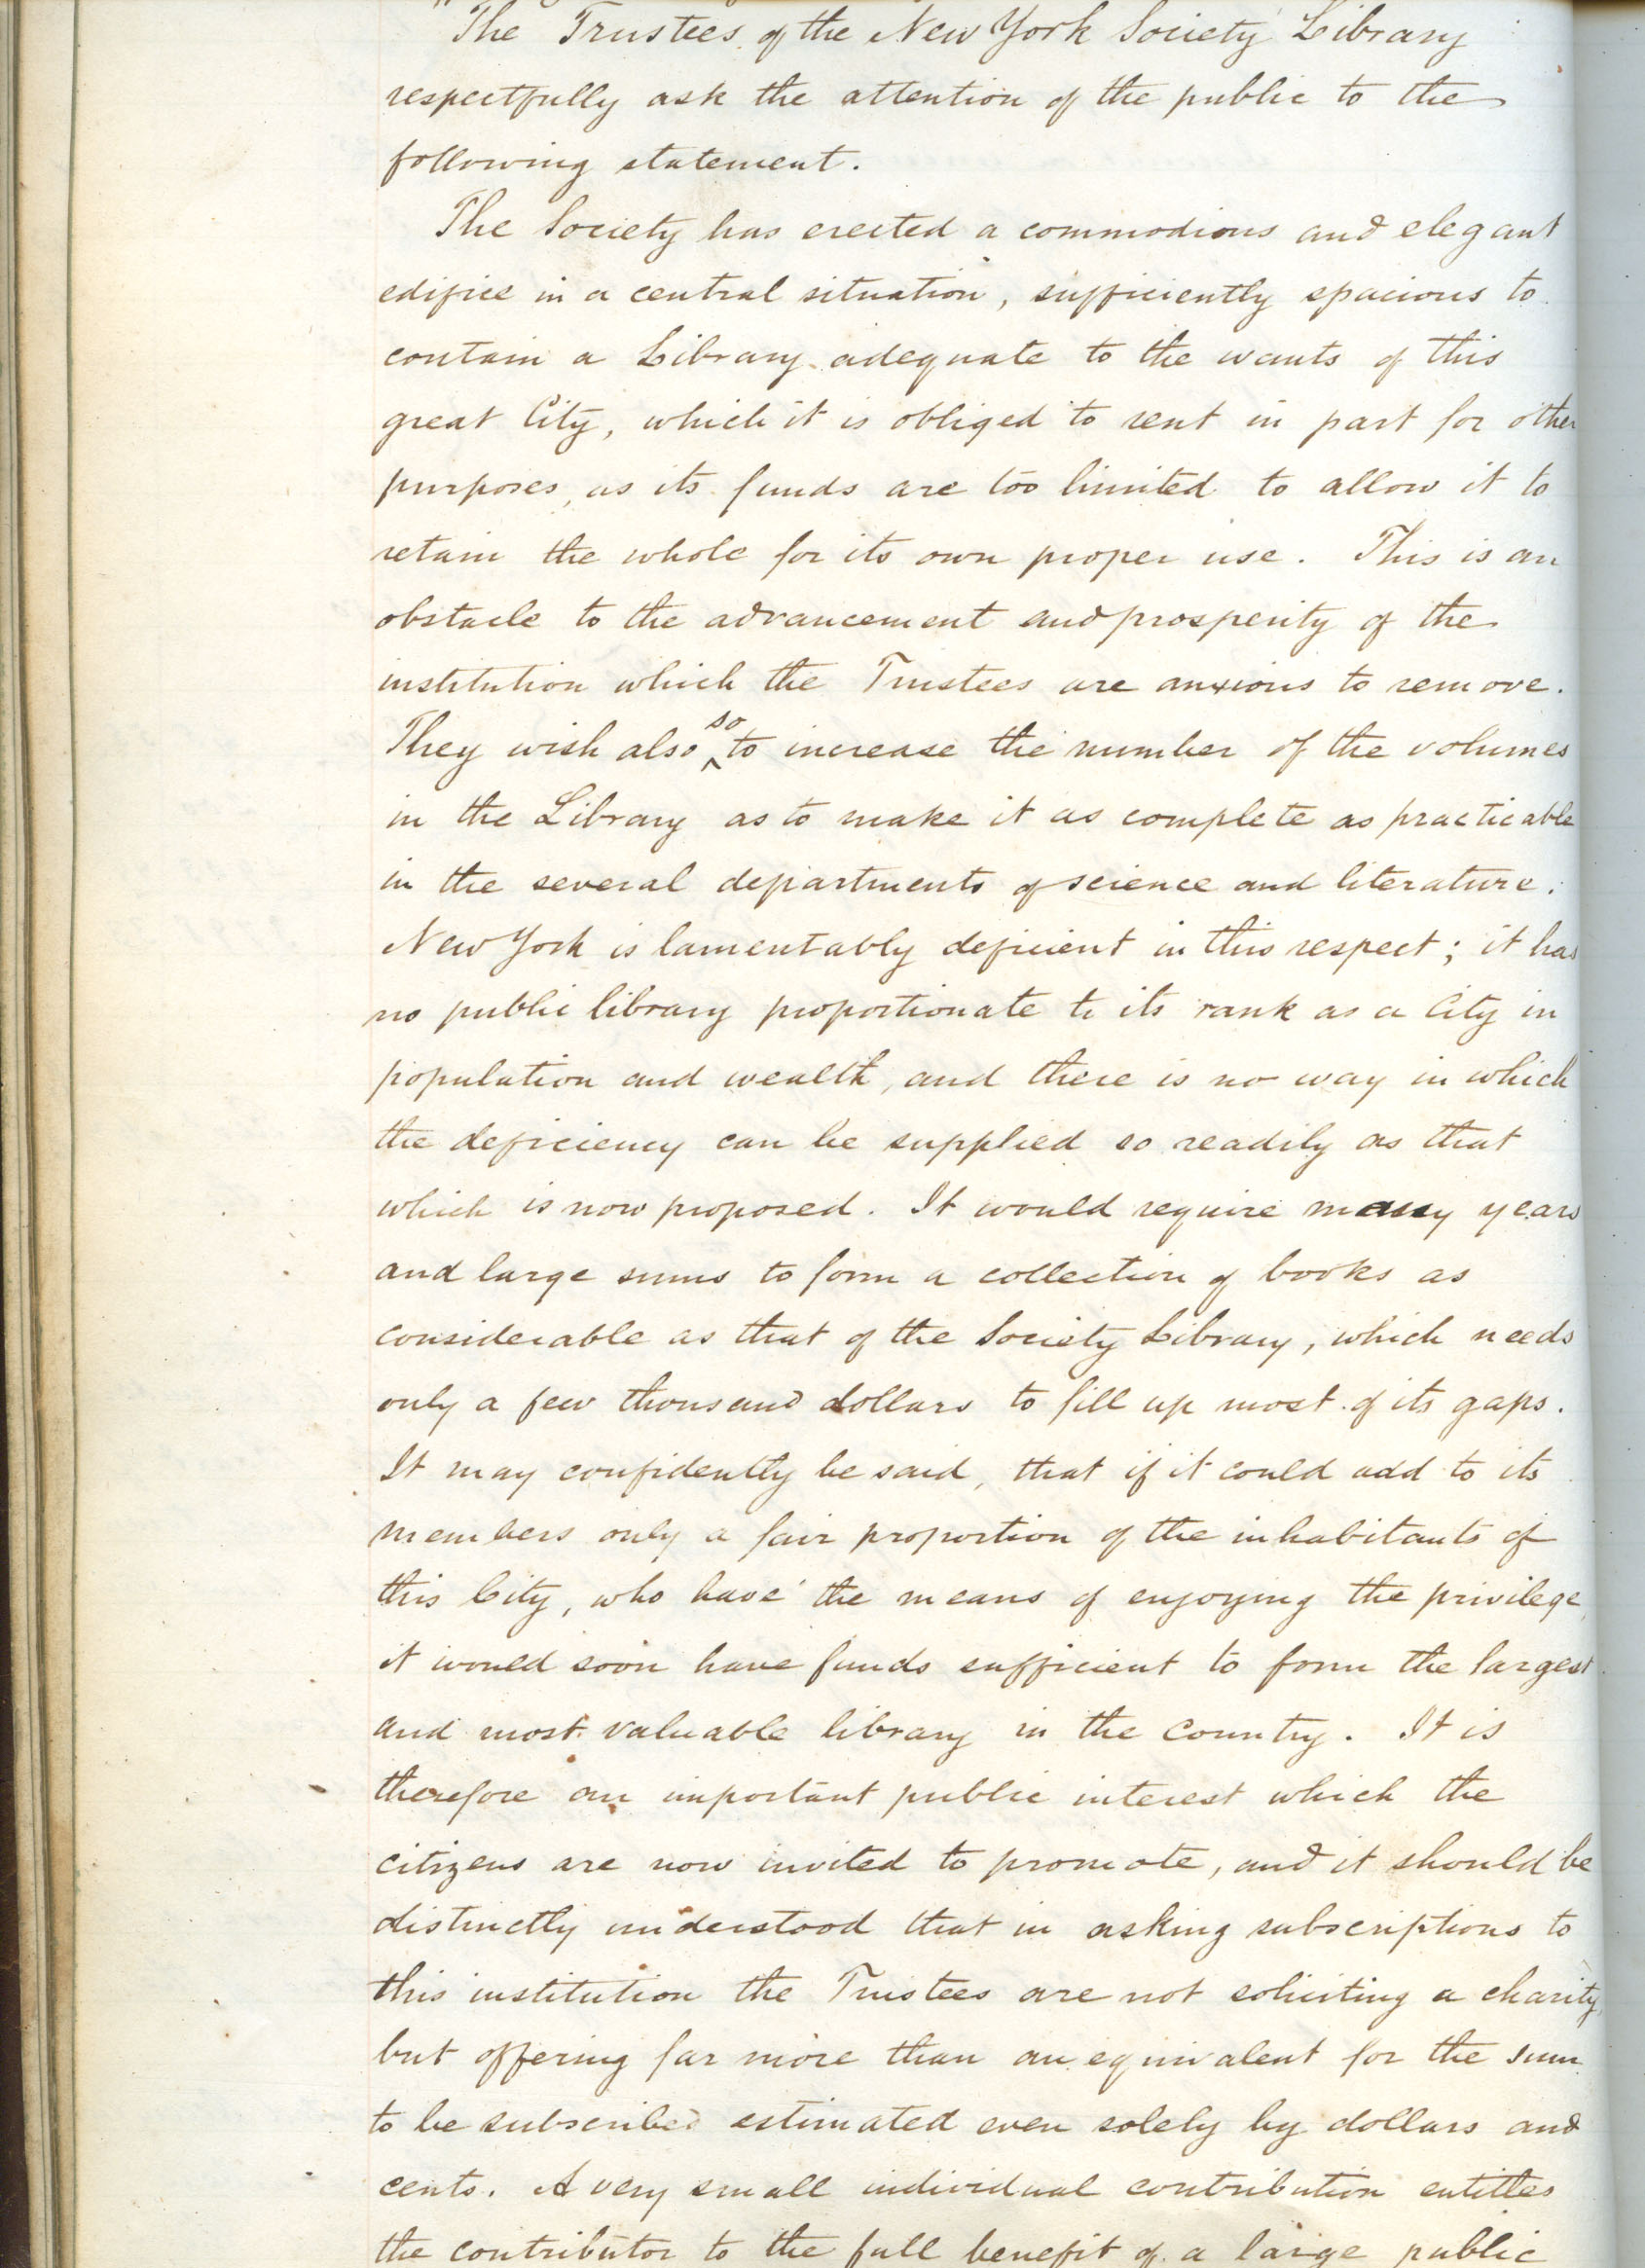 "The Trustees of the New York Society Library
respectfully ask the attention of the public to the
following statement.
The Society has erected a commodious and elegant
edifice in a central situation, sufficiently spacious to
contain a Library adequate to the wants of this
great City, which it is obliged to rent in part for other
purposes, as its funds are too limited to allow it to
retain the whole for its own proper use. This is an
obstacle to the advancement and prosperity of the
institution which the Trustees are anxious to remove.
They wish also so to increase the number of the volumes
in the Library as to make it as complete as practicable
in the several departments of science and literature.
New York is lamentably deficient in this respect; it has
no public library proportionate to its rank as a City in
population and wealth, and there is no way in which
the deficiency can be supplied so readily as that
which is now proposed. It would require many years
and large sums to form a collection of books as
considerable as that of the Society Library, which needs
only a few thousand dollars to fill up most of its gaps.
It may confidently be said, that if it could add to its
members only a fair proportion of the inhabitants of
this City, who have the means of enjoying the privilege,
it would soon have funds sufficient to form the largest
and most valuable library in the Country. It is
therefore an important public interest which the
citizens are now invited to promote, and it should be
distinctly understood that in asking subscriptions to
this institution the Trustees are not soliciting a charity,
but offering far more than an equivalent for the sum
to be subscribed estimated even solely by dollars and
cents. A very small individual contribution entitles
the contributor to the full benefit of a large public